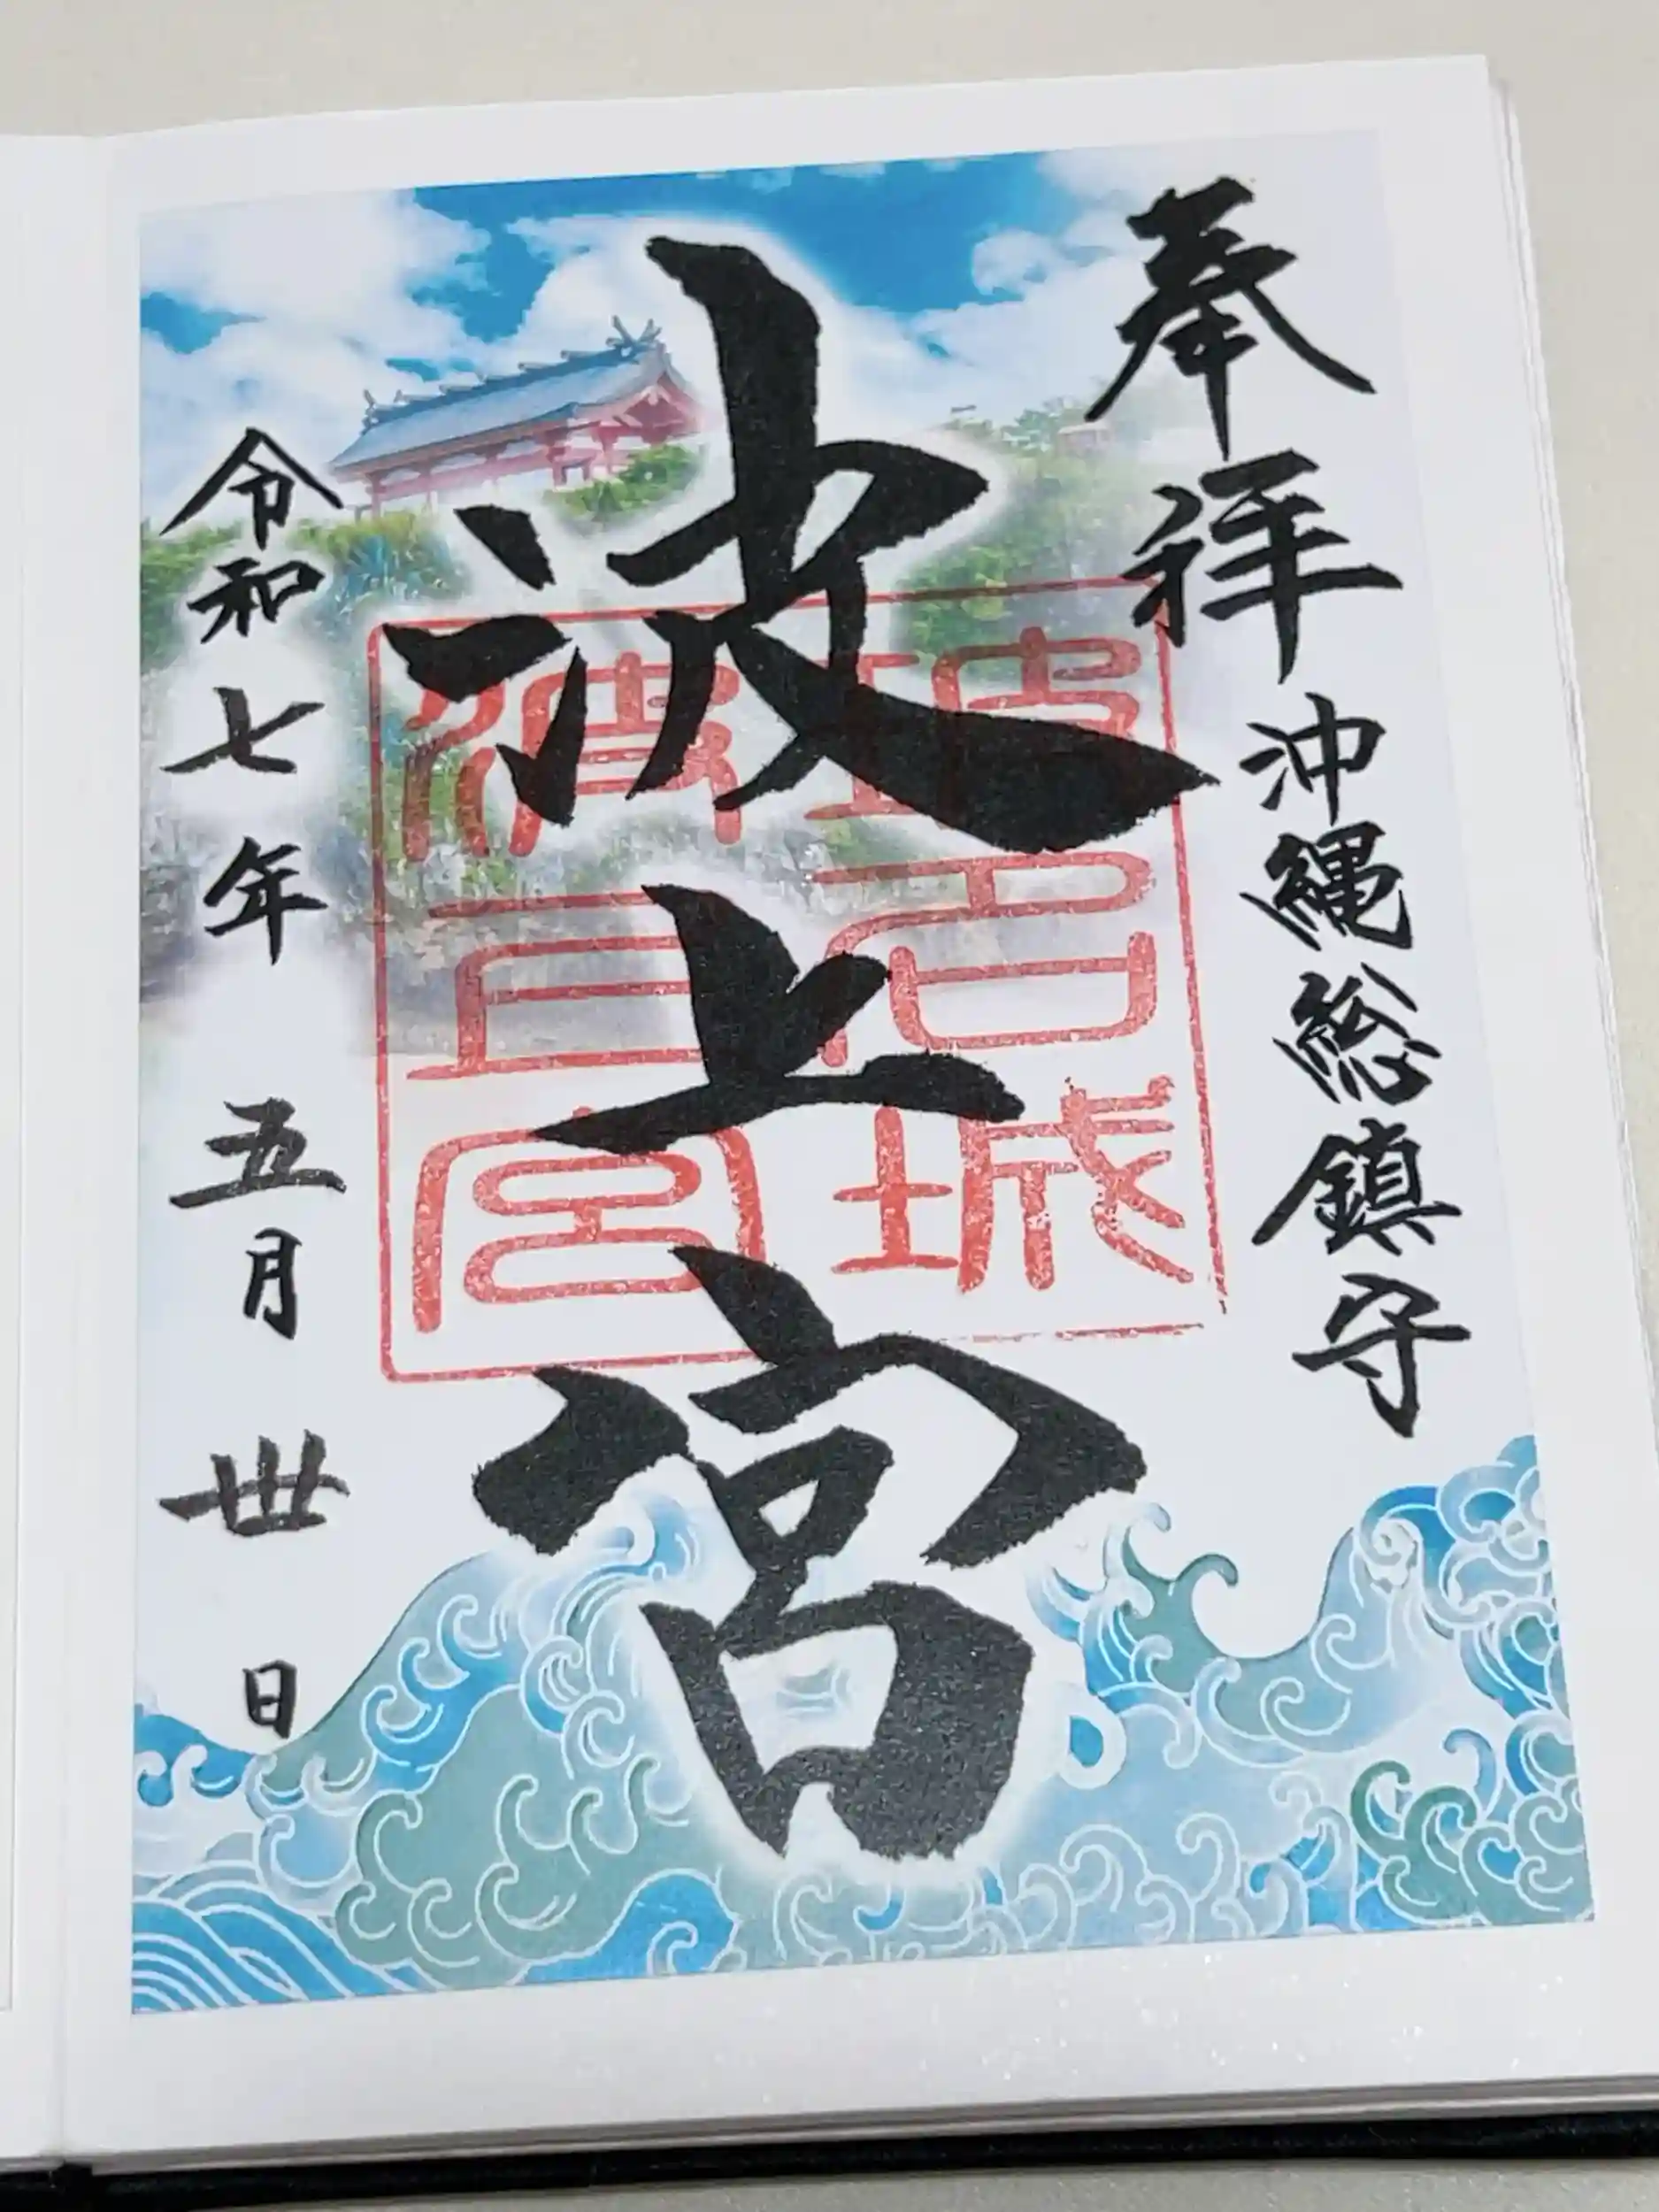 奉拝
沖縄総鎮守
波上宮
令和七年 五月 丗日